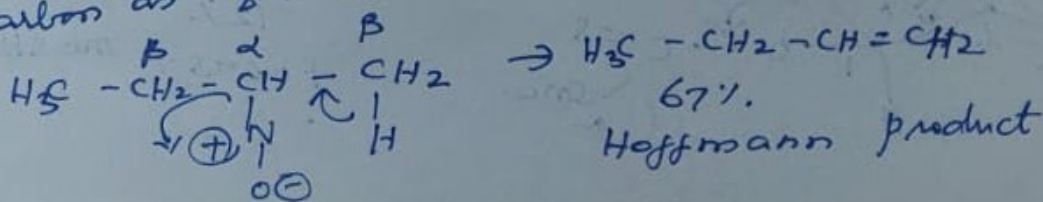 carbon as β
β α β
H3C - CH2 - CH - CH2 → H3C - CH2 - CH = CH2
⊕ N H 67%.
O⊖ Hoffmann product